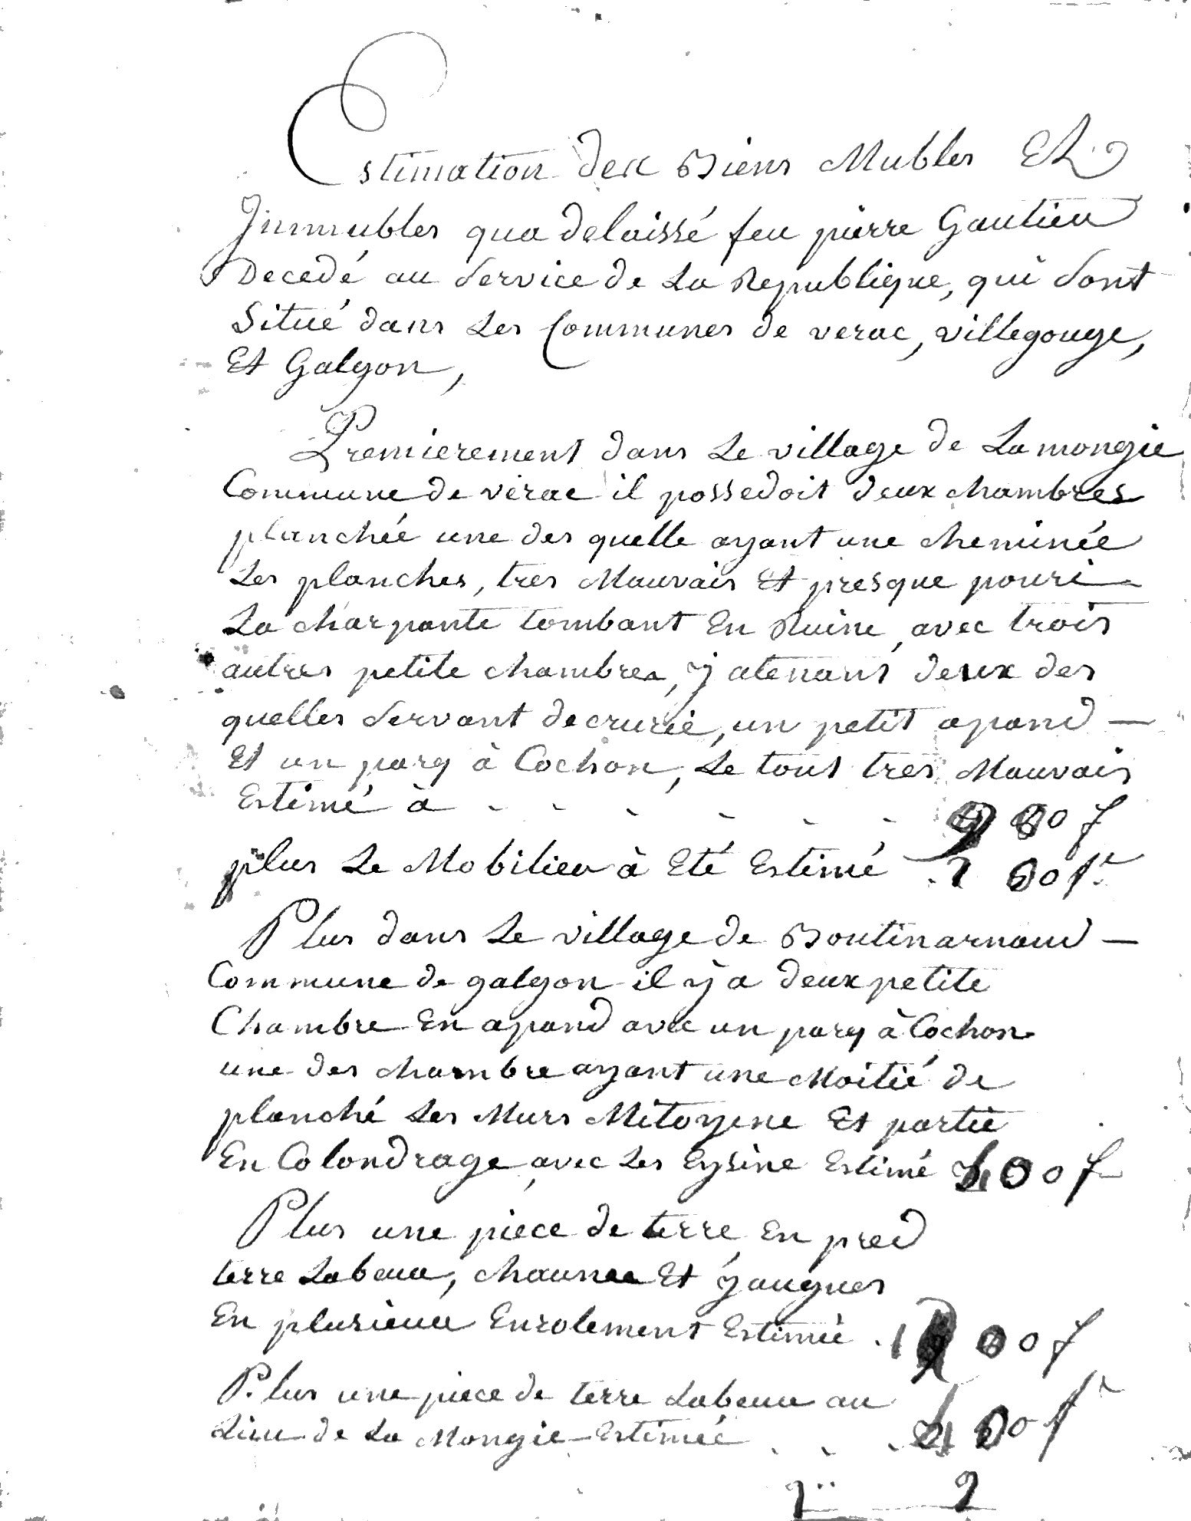 Estimation des Biens Mubles Et
Immeubles qua delaissé feu pierre Gautieu
Decedé au Service de La Republique, qui Sont
Situé dans Les Communes de verac, villegouge,
Et Galgon,
Premierement dans Le village de Lamongie
Commune de verac il possedoit deux chambres
planchée une des quelle ayant une cheminée
Les planches, tres Mauvais Et presque pouri
La charpante tombant En Ruine, avec trois
autres petite chambres, y atenant deux des
quelles Servant decrurie, un petit apand
Et un parq à Cochon, Le tout tres Mauvais
Estimé à 00 f
plus Le Mobilieu à Eté Estimé 00 f
Plus dans Le village de Boutinarnaud
Commune de galgon il y a deux petite
Chambre En apand avec un parq à Cochon
une des chambre ayant une Moitié de
planché Les Murs Mitoyene Et partie
En Colondrage avec Les Eysine Estimé 400 f
Plus une piéce de terre En pred
terre Labeua, chaumee Et yaugues
En plusieuu Enrolement Estimée 00 f
Plus une piece de terre Labeuu au
Lieu de La Mongie Estimée 400 f